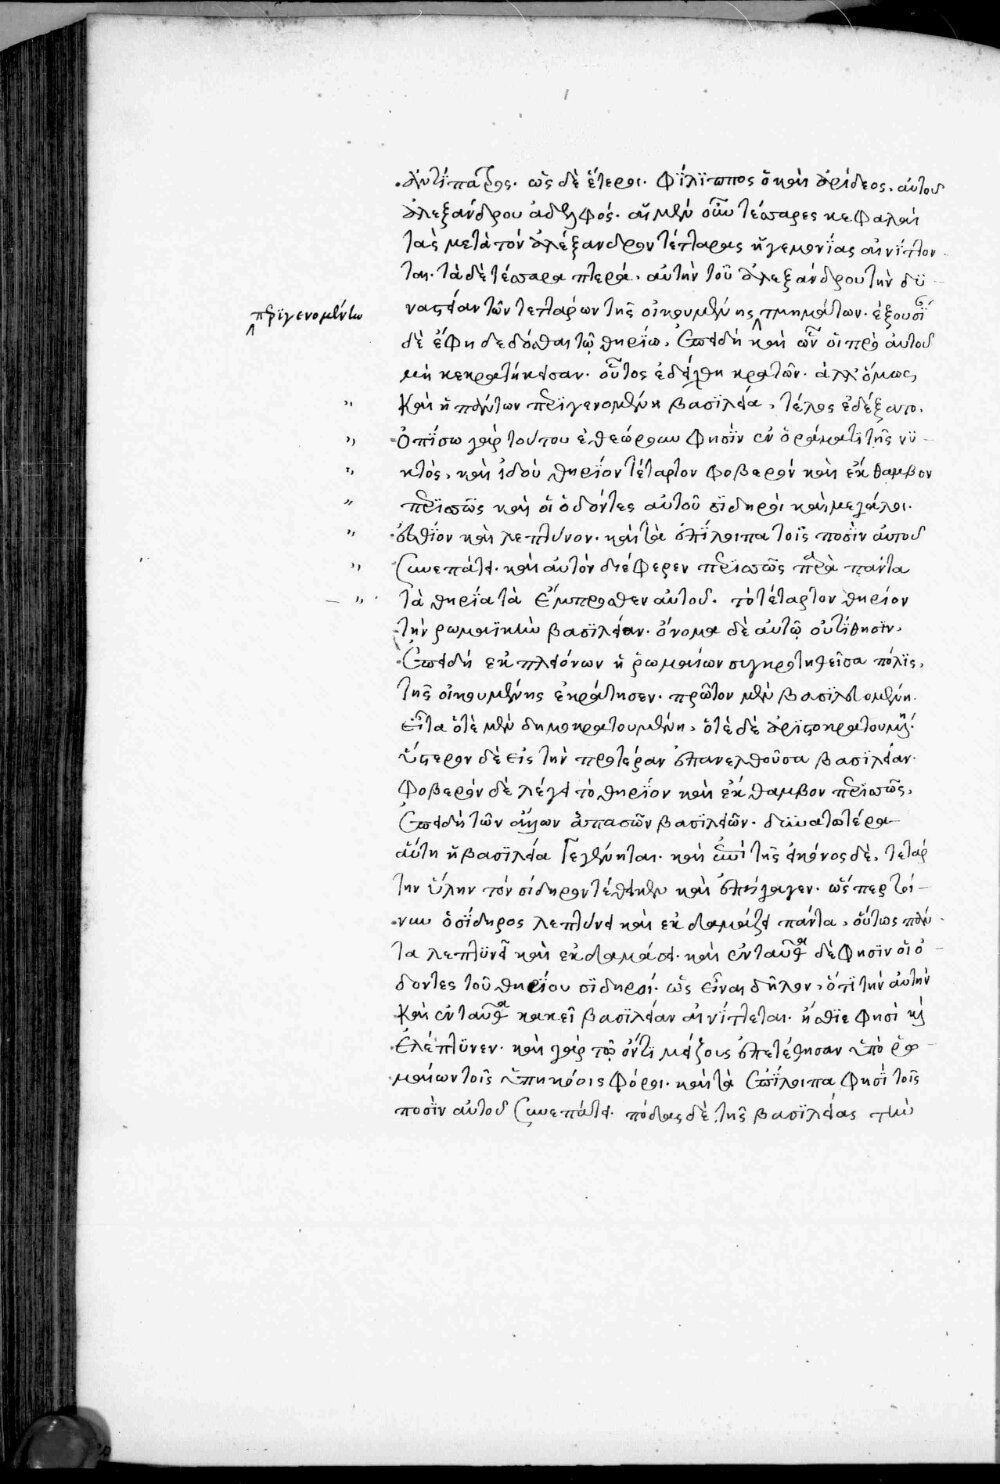 Ἀντίπατρος. ὡς δὲ ἕτεροι. Φίλιππος ὁ καὶ ἀρίδεος, αὐτοῦ
ἀλεξάνδρου ἀδελφός. αἱ μὲν οὖν τέσσαρες κεφαλαὶ
τὰς μετὰ τὸν ἀλέξανδρον τέτταρας ἡγεμονίας αἰνίττον
ται. τὰ δὲ τέσσαρα πτερά. αὐτὴν τοῦ ἀλεξάνδρου τὴν δυ
ναστείαν τῶν τεττάρων τῆς οἰκουμένης τμημάτων. ἐξουσία
περιγενομένην
δὲ ἔφη δεδόσθαι τῷ θηρίω. ἐπειδὴ καὶ ὧν οἱ πρὸ αὐτοῦ
μὴ κεκρατήκεισαν. οὗτος ἐδείχθη κρατῶν. ἀλλ' ὅμως,
Καὶ ἡ πάντων περιγενομένη βασιλεία, τέλος ἐδέξατο.
Ὀπίσω γὰρ τούτου ἐθεώρουν φησὶν ἐν ὁράματι τῆς νυ
κτὸς, καὶ ἰδοὺ θηρίον τέταρτον φοβερὸν καὶ ἔκθαμβον
περισσῶς καὶ οἱ ὀδόντες αὐτοῦ σιδηροὶ καὶ μεγάλοι.
ἐσθίον καὶ λεπτύνον. καὶ τὰ ἐπίλοιπα τοῖς ποσὶν αὐτοῦ
συνεπάτει. καὶ αὐτὸν διέφερεν περισσῶς παρὰ πάντα
τὰ θηρία τὰ ἔμπροσθεν αὐτοῦ. τὸ τέταρτον θηρίον
τὴν ρωμαϊκὴν βασιλείαν. ὄνομα δὲ αὐτῷ οὐ τίθησιν.
ἐπειδὴ ἐκ πλειόνων ἡ ῥωμαίων συγκροτηθεῖσα πόλις,
τῆς οἰκουμένης ἐκράτησεν. πρῶτον μὲν βασιλευομένη.
εἶτα ὁτὲ μὲν δημοκρατουμένη, ὁτὲ δὲ ἀριστοκρατουμένη.
ὕστερον δὲ εἰς τὴν προτέραν ἐπανελθοῦσα βασιλείαν.
Φοβερὸν δὲ λέγει τὸ θηρίον καὶ ἔκθαμβον περισσῶς,
ἐπειδὴ τῶν ἄλλων ἁπασῶν βασιλειῶν. δυνατωτέρα
αὕτη ἡ βασιλεία γεγένηται. καὶ ἐπὶ τῆς εἰκόνος δὲ, τετάρ
την ὕλην τὸν σίδηρον τέθεικεν καὶ ἐπήγαγεν. ὥσπερ τοί
νυν ὁ σίδηρος λεπτύνει καὶ ἐκδαμάζει πάντα, οὕτως πάν
τα λεπτυνεῖ καὶ ἐκδαμάσει. καὶ ἐνταῦθα δὲ φησιν οἱ ὀ
δόντες τοῦ θηρίου σιδηροῖ. ὡς εἶναι δῆλον, ὅτι τὴν αὐτὴν
Καὶ ἐνταῦθα κακεῖ βασιλείαν αἰνίττεται. ἤσθιε φησὶ καὶ
ἐλέπτυνεν. καὶ γὰρ τῷ ὄντι μείζους ἐπετέθησαν ὑπὸ ῥω
μαίων τοῖς ὑπηκόοις φόροι. καὶ τὰ ἐπίλοιπα φησὶ τοῖς
ποσὶν αὐτοῦ συνεπάτει. πόδας δὲ τῆς βασιλείας τὴν